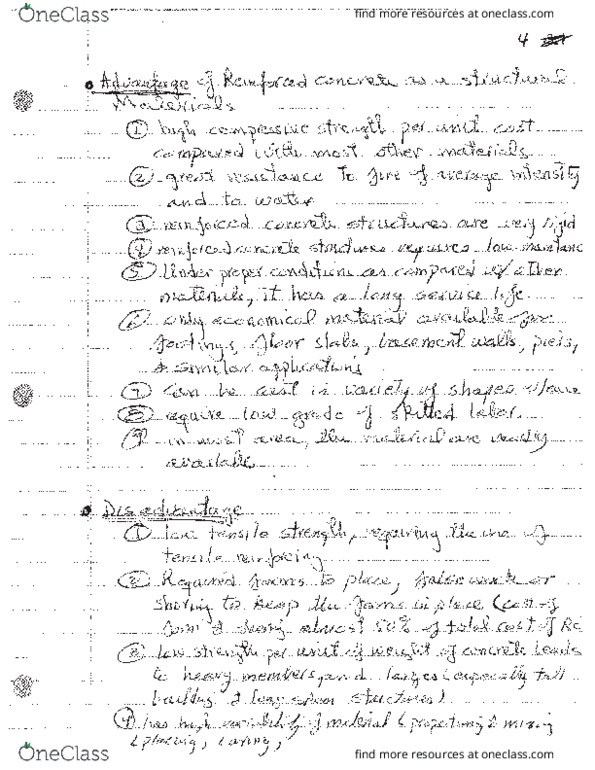 OneClass
find more resources at oneclass.com
4
• Advantage of Reinforced concrete as a structural
Materials
① high compressive strength per unit cost
compared with most other materials
② great resistance to fire of average intensity
and to water
③ reinforced concrete structures are very rigid
④ reinforced concrete structures requires low
⑤ Under proper conditions as compared w/ other
materials, it has a long service life
⑥ only economical material available for
footings, floor slabs, basement walls, piers,
& similar applications
⑦ can be cast in variety of shapes
⑧ require low grade of skilled labor
⑨ in most area, the material are readily
available
• Disadvantage
① low tensile strength, requiring the use of
tensile
② Required forms to place, falsework or
shoring to keep the forms in place (cost of
form & shoring almost 50% of total cost of RC
③ low strength per unit of weight of concrete leads
to heavy members, and larges (especially tall
building & long span structures)
④ has high variability of material (&  mixing
& placing, curing,
OneClass
find more resources at oneclass.com